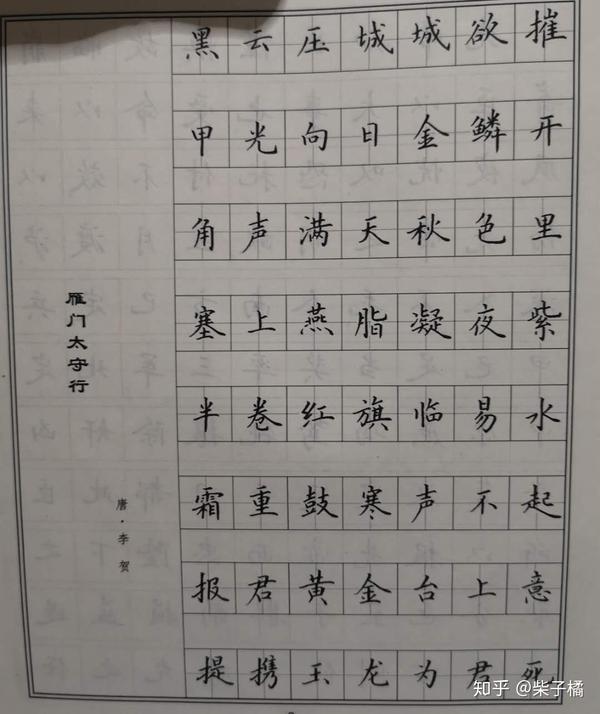 黑云压城城欲摧
甲光向日金鳞开
角声满天秋色里
塞上燕脂凝夜紫
半卷红旗临易水
霜重鼓寒声不起
报君黄金台上意
提携玉龙为君死
雁门太守行
唐·李贺
知乎 @柴子橘